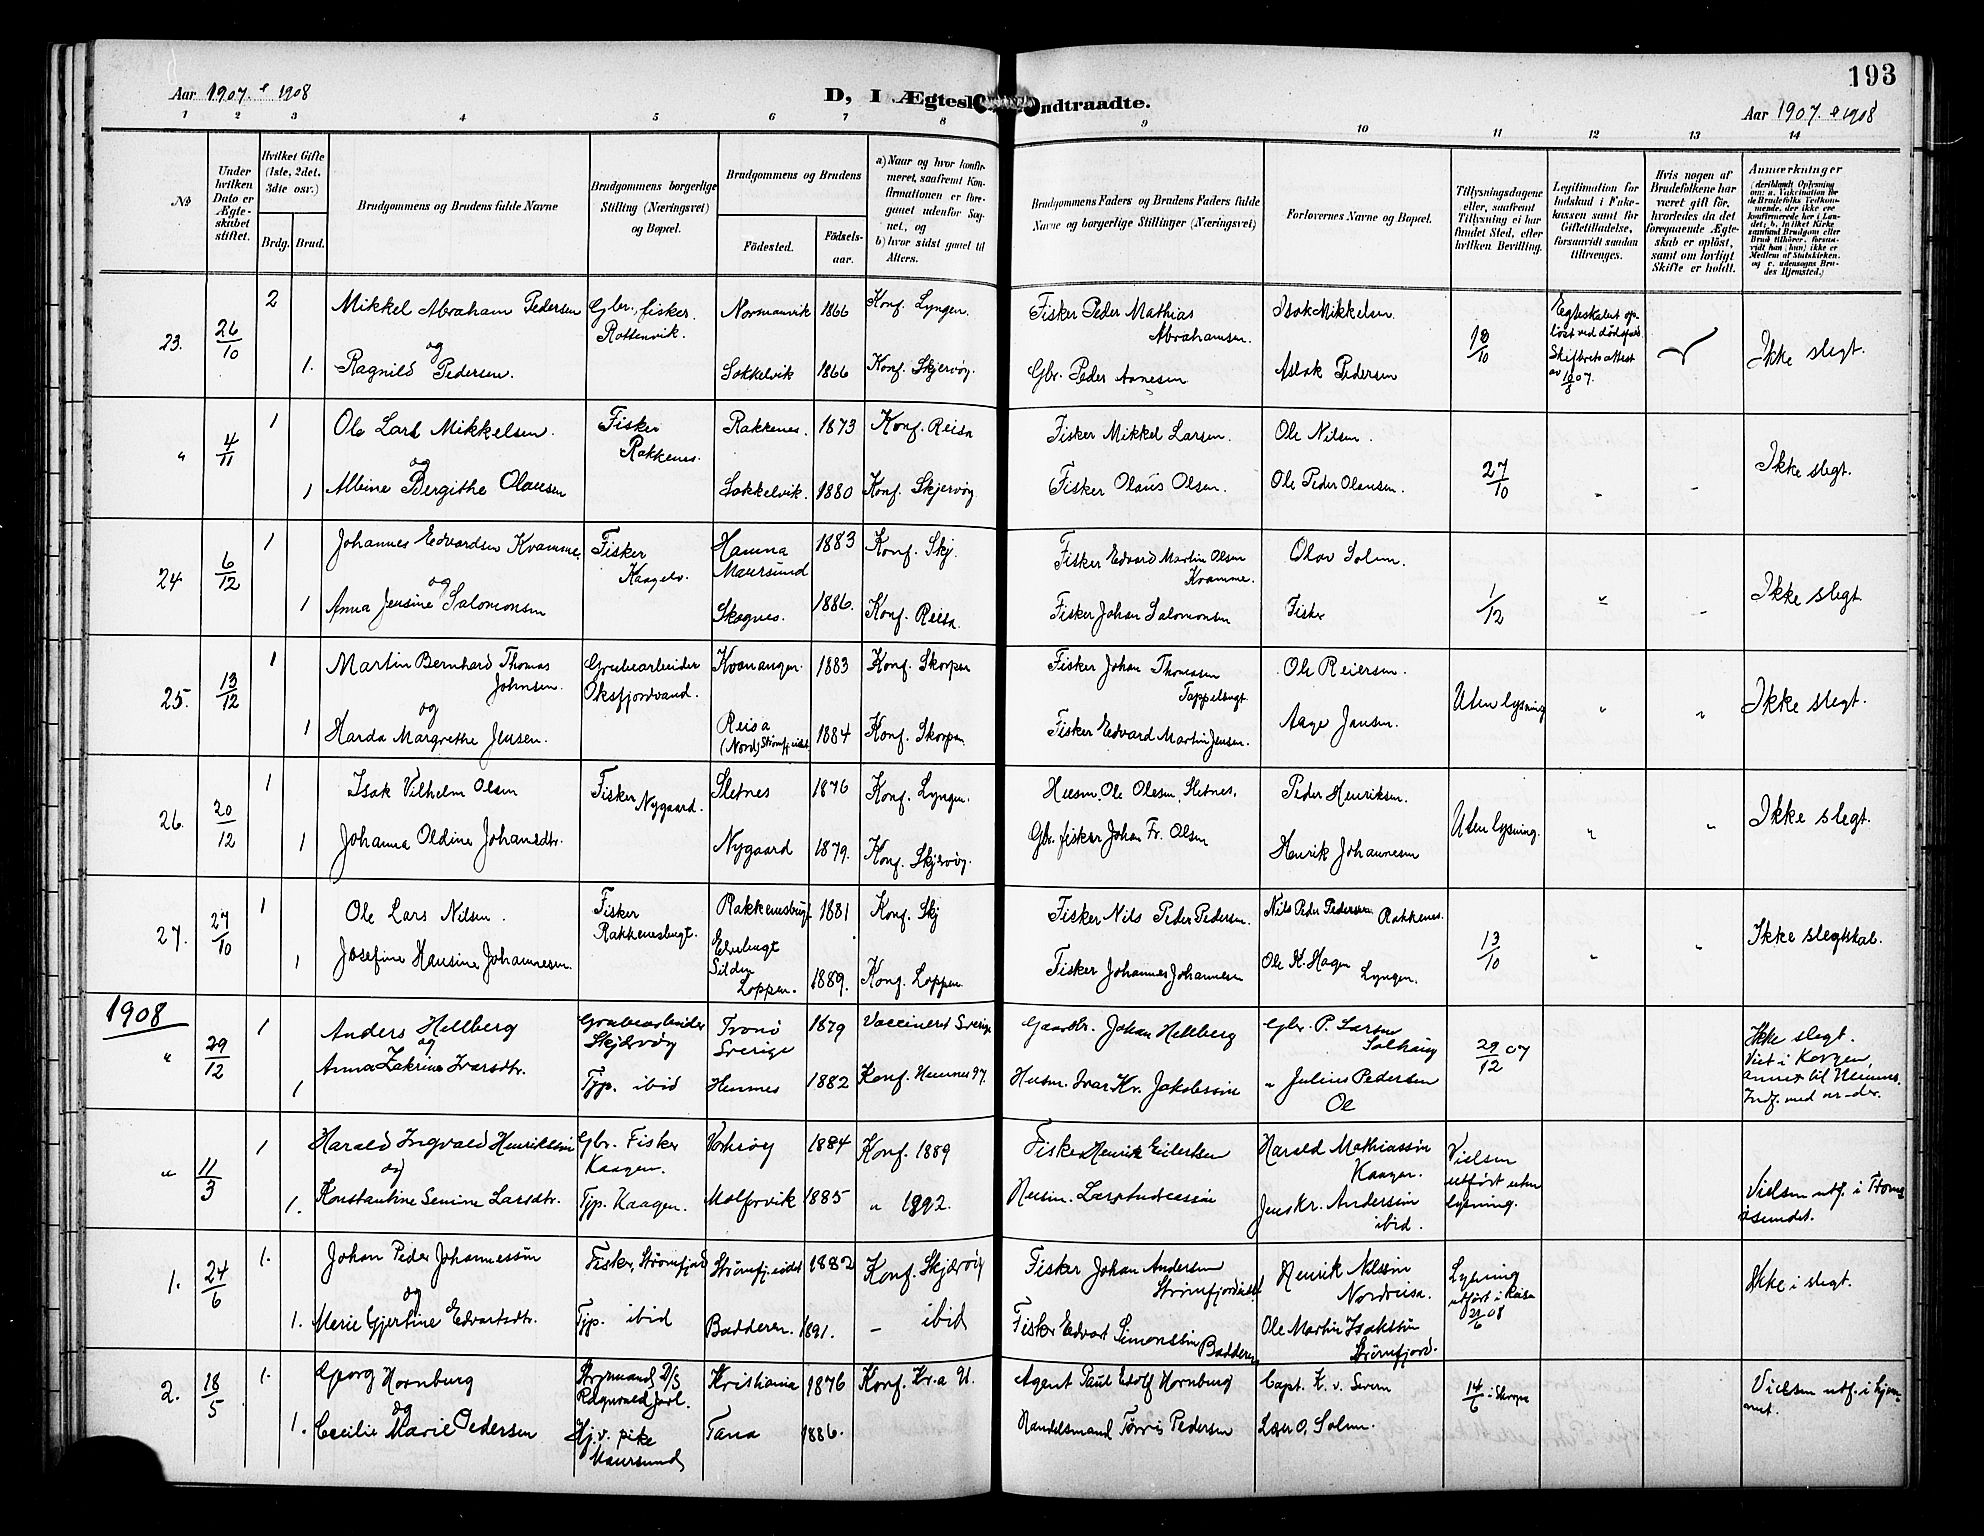 193
Aar 1907. & 1908
D, I. Ægtesk ndtraadte.
Aar 1907. & 1908
1 2 3 4 5 6 7 8 9 10 11 12 13 14
No
Under hvilken Dato er Ægteskabet stiftet.
Hvilket Gifte (1ste, 2det, 3die osv.)
Brdg. Brud.
Brudgommens og Brudens fulde Navne
Brudgommens borgerlige Stilling (Næringsvei) og Bopæl.
Brudgommens og Brudens
Födested. Födsels-aar.
a) Naar og hvor konfirmeret, saafremt Konfirmationen er foregaaet udenfor Sognet, og
b) hvor sidst gaaet til Alters.
Brudgommens Faders og Brudens Faders fulde Navne og borgerlige Stillinger (Næringsvei)
Forlovernes Navne og Bopæl.
Tillysningsdagene eller, saafremt Tillysning ei har fundet Sted, efter hvilken Bevilling.
Legitimation for Indskud i Enkekassen samt for Giftetilladelse, forsaavidt saadan tiltrænges.
Hvis nogen af Brudefolkene har været gift för, hvorledes da det foregaaende Ægteskab er oplöst, samt om lovligt Skifte er holdt.
Anmærkninger
(deriblandt Oplysning om: a. Vaccination for de Brudefolks Vedkommende, der ikke ere konfirmerede her i Landet; b. hvilket Kirkesamfund Brudgom eller Brud tilhörer, forsaavidt han (hun) ikke er Medlem af Statskirken, og c. udensogns Brudes Hjemsted.)
23. 26/10 2 Mikkel Abraham Pedersen Gbr., fisker. Rottenvik. Normanvik 1866 Konf. Lyngen. Fisker Peder Mathias Abrahamsen. Isak Mikkelsen. 18/10 Egteskabet oplöst ved dödsfald. Skifterets attest av 18/8 07. Ikke slegt.
og
1. Ragnild Pedersen. Sokkelvik 1866 Konf. Skjervöy. Gbr. Peder Arnesen Aslak Pedersen
„ 4/11 1 Ole Lars Mikkelsen. Fisker Rakkenes. Rakkenes. 1873 Konf. Reisa Fisker Mikkel Larsen. Ole Nilsen. 27/10 „ „ Ikke slegt.
og
1 Albine Bergithe Olausen Sokkelvik. 1880 Konf. Skjervöy Fisker Olaus Olsen. Ole Peder Olausen.
24 6/12 1 Johannes Edvardsen Kvamme. Fisker Kaagelv. Hamna Maursund 1883 Konf. Skj. Fisker Edvard Martin Olsen Kvamme. Olav Solem. 1/12 „ „ Ikke slegt
og
1 Anna Jensine Salomonsen Skognes. 1886. Konf. Reisa. Fisker Johan Salomonsen Fisker
25. 13/12 1 Martin Bernhard Thomas Johnsen. Grubearbeider Oksfjordvand. Kvænangen 1883 Konf. Skorpen Fisker Johan Thomassen Tappelbugt Ole Reiersen. Uten lysning „ „ Ikke slegt.
og
1 Harda Margrethe Jensen. Reisa (Nord) Strömfj.eidet 1884 Konf. Skorpen Fisker Edvard Martin Jensen. Aage Jensen.
26. 20/12 1 Isak Vilhelm Olsen Fisker Nygaard. Sletnes 1876 Konf. Lyngen. Husm. Ole Olesen, Sletnes. Peder Henriksen. Uten lysning. „ „ Ikke slegt.
1 Johanna Oldine Johansdtr. Nygaard 1879. Konf. Skjervöy. Gbr. fisker Johan Fr. Olsen Henrik Johannesen
27. 27/10 1 Ole Lars Nilsen. Fisker Rakkenesbugt. Rakkenesbugt 1881 Konf. Skj Fisker Nils Peder Pedersen. Nils Peder Pedersen Rakkenes. 13/10 „ „ Ikke slegtskab.
1 Josefine Hansine Johannesen. Elvebugt Silden Loppen. 1889. Konf. Loppen Fisker Johannes Johannesen Ole K. Hagen Lyngen.
1908
„ 29/12 1 Anders Hellberg Grubearbeider Skjærvöy Sverige 1879 Vaccineret Sverige Gaardbr. Johan Hellberg Gbr. P. Larsen Solhaug 29/12 07 Ikke slegt.
og Viet i Korgen, annex til Hemnes.
1 Anna Zakrine Ivarsdtr. Typ. ibid Hemnes 1882 Konf. Hemnes 97. Husm. Ivar Kr. Jakobssön „ Julius Pedersen
„ 11/3 1 Harald Ingvald Henrikssön Gbr. Fisker Kaagen. Vorteröy 1884 Konf. 1889 Fisker Henrik Harald Mathiassön Kaagen. Vielsen utfört uten lysning. Vielsen utf. i Tromsösundet.
og
1. Konstantine Semine Larsdtr. Typ. Kaagen. Molforvik 1885 „ 1892. Husm. Lars Andreassön Jens Kr. Anderssön ibid.
1. 24/6 1. Johan Peder Johannessön Fisker, Strömfjord Strömfj.eidet 1882 Konf. Skjærvöy Fisker Johan Andersen Strömfjordeidet Henrik Nilssön Nordreisa. Lysning utfört i Reisa 22/6 08 Ikke i slegt.
og
1. Merie Gjertine Edvartsdtr. Typ. ibid Badderen. 1891. – ibid Fisker Edvart Simonssön Badderen Ole Martin Isakssön Strömfjord.
2. 18/5 1. Georg Hornburg Styrmand D/S Ragnvald Jarl. Kristiania 1876 Konf. Kr.a 91. Agent Paul Edolf Hornburg Capt. K. v. 14/6 i Skorpa Vielsen utf. i hjemmet.
og
1. Cecilie Marie Pedersen Hj.v. pike Maursund Tana 1886. Handelsmand Törris Pedersen O. Solem.